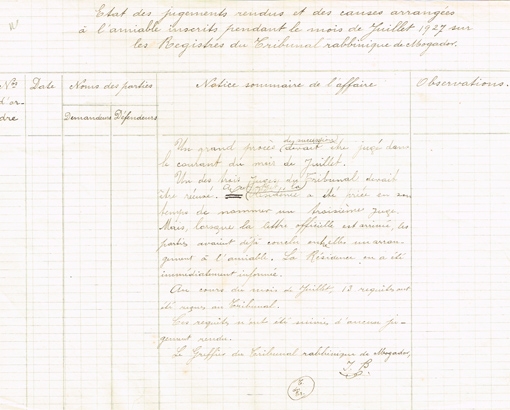 Etat des jugements rendus et des causes arrangées
à l'amiable inscrits pendant le mois de Juillet 1927 sur
les Registres du Tribunal rabbinique de Mogador.
Nos d'or-dre
Date
Noms des parties
Demandeurs
Défendeurs
Notice sommaire de l'affaire
Observations.
Un grand procès de succession devait être jugé dans
le courant du mois de Juillet.
Un des trois Juges du Tribunal devait
être récusé. a été priée en son
temps de nommer un troisième juge.
Mais, lorsque la lettre officielle est arrivée, les
parties avaient déjà conclu entr'elles un arran-
gement à l'amiable. La Résidence en a été
immédiatement informée.
Au cours du mois de Juillet, 13 requêtes ont
été reçues au Tribunal.
Ces requêtes n'ont été suivies d'aucun ju-
gement rendu.
Le Greffier du Tribunal rabbinique de Mogador,